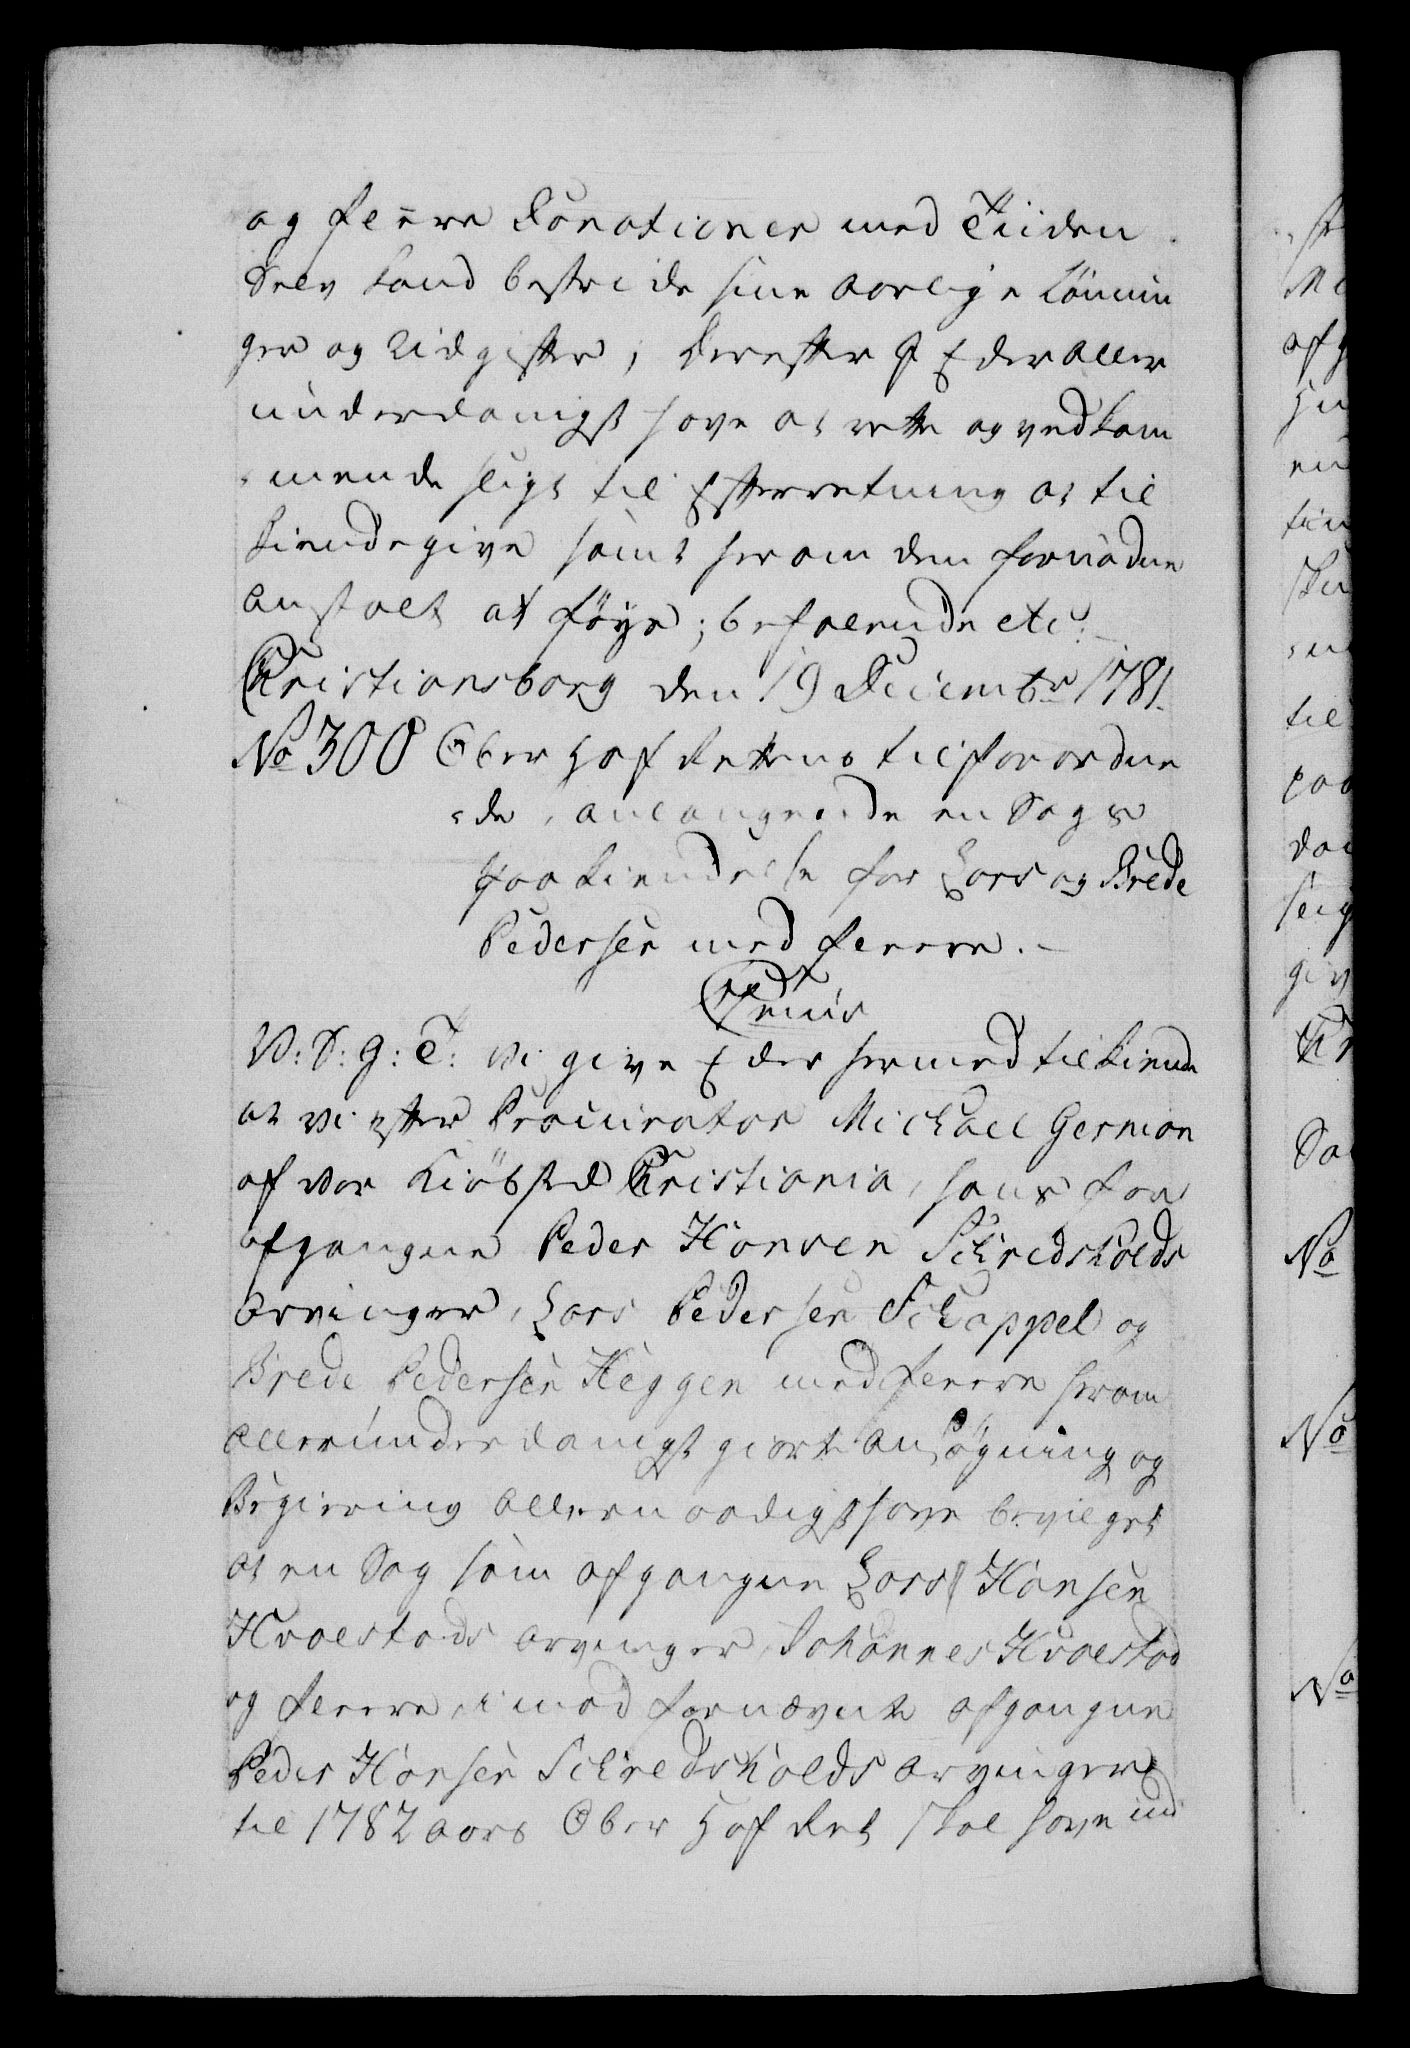 og fleere Donationer med Tiiden
Selv kand bestride sine aarlige Lønnin
ger og Udgifter; Derefter I Eder aller
underdanigst have at rette og vedkom
-mende sligt til Efterretning at til
kiendegive samt herom den fornødne
Anstalt at føye; befalende etc:
Christiansborg den 19 Decembr 1781.
No 300 Ober Hof Rettens tilforordne
-de, anlangende en Sags
Paakiendelse for Lars og Brede
Pedersen med fleere.
C 7mus
V: S: G: T: Vi give Eder hermed tilkiende
at vi efter Procurator Michael German
af vor Kiöbsted Christiania, hans for
afgangne Peder Hansen Schredsholds
Arvinger, Lars Pedersen Schappel og
Brede Pedersen Heggen med fleere herom
allerunderdanigst giorte Ansøgning og
Begiering allernaadigst have bevilget
at en Sag som afgangne Lars Hansen
Hvalstads Arvinger, Johannes Hvalstad
og fleere, imod fornævnte afgangne
Peder Hansen Schredsholds Arvinger
til 1782 Aars Ober Hof Ret skal have ind